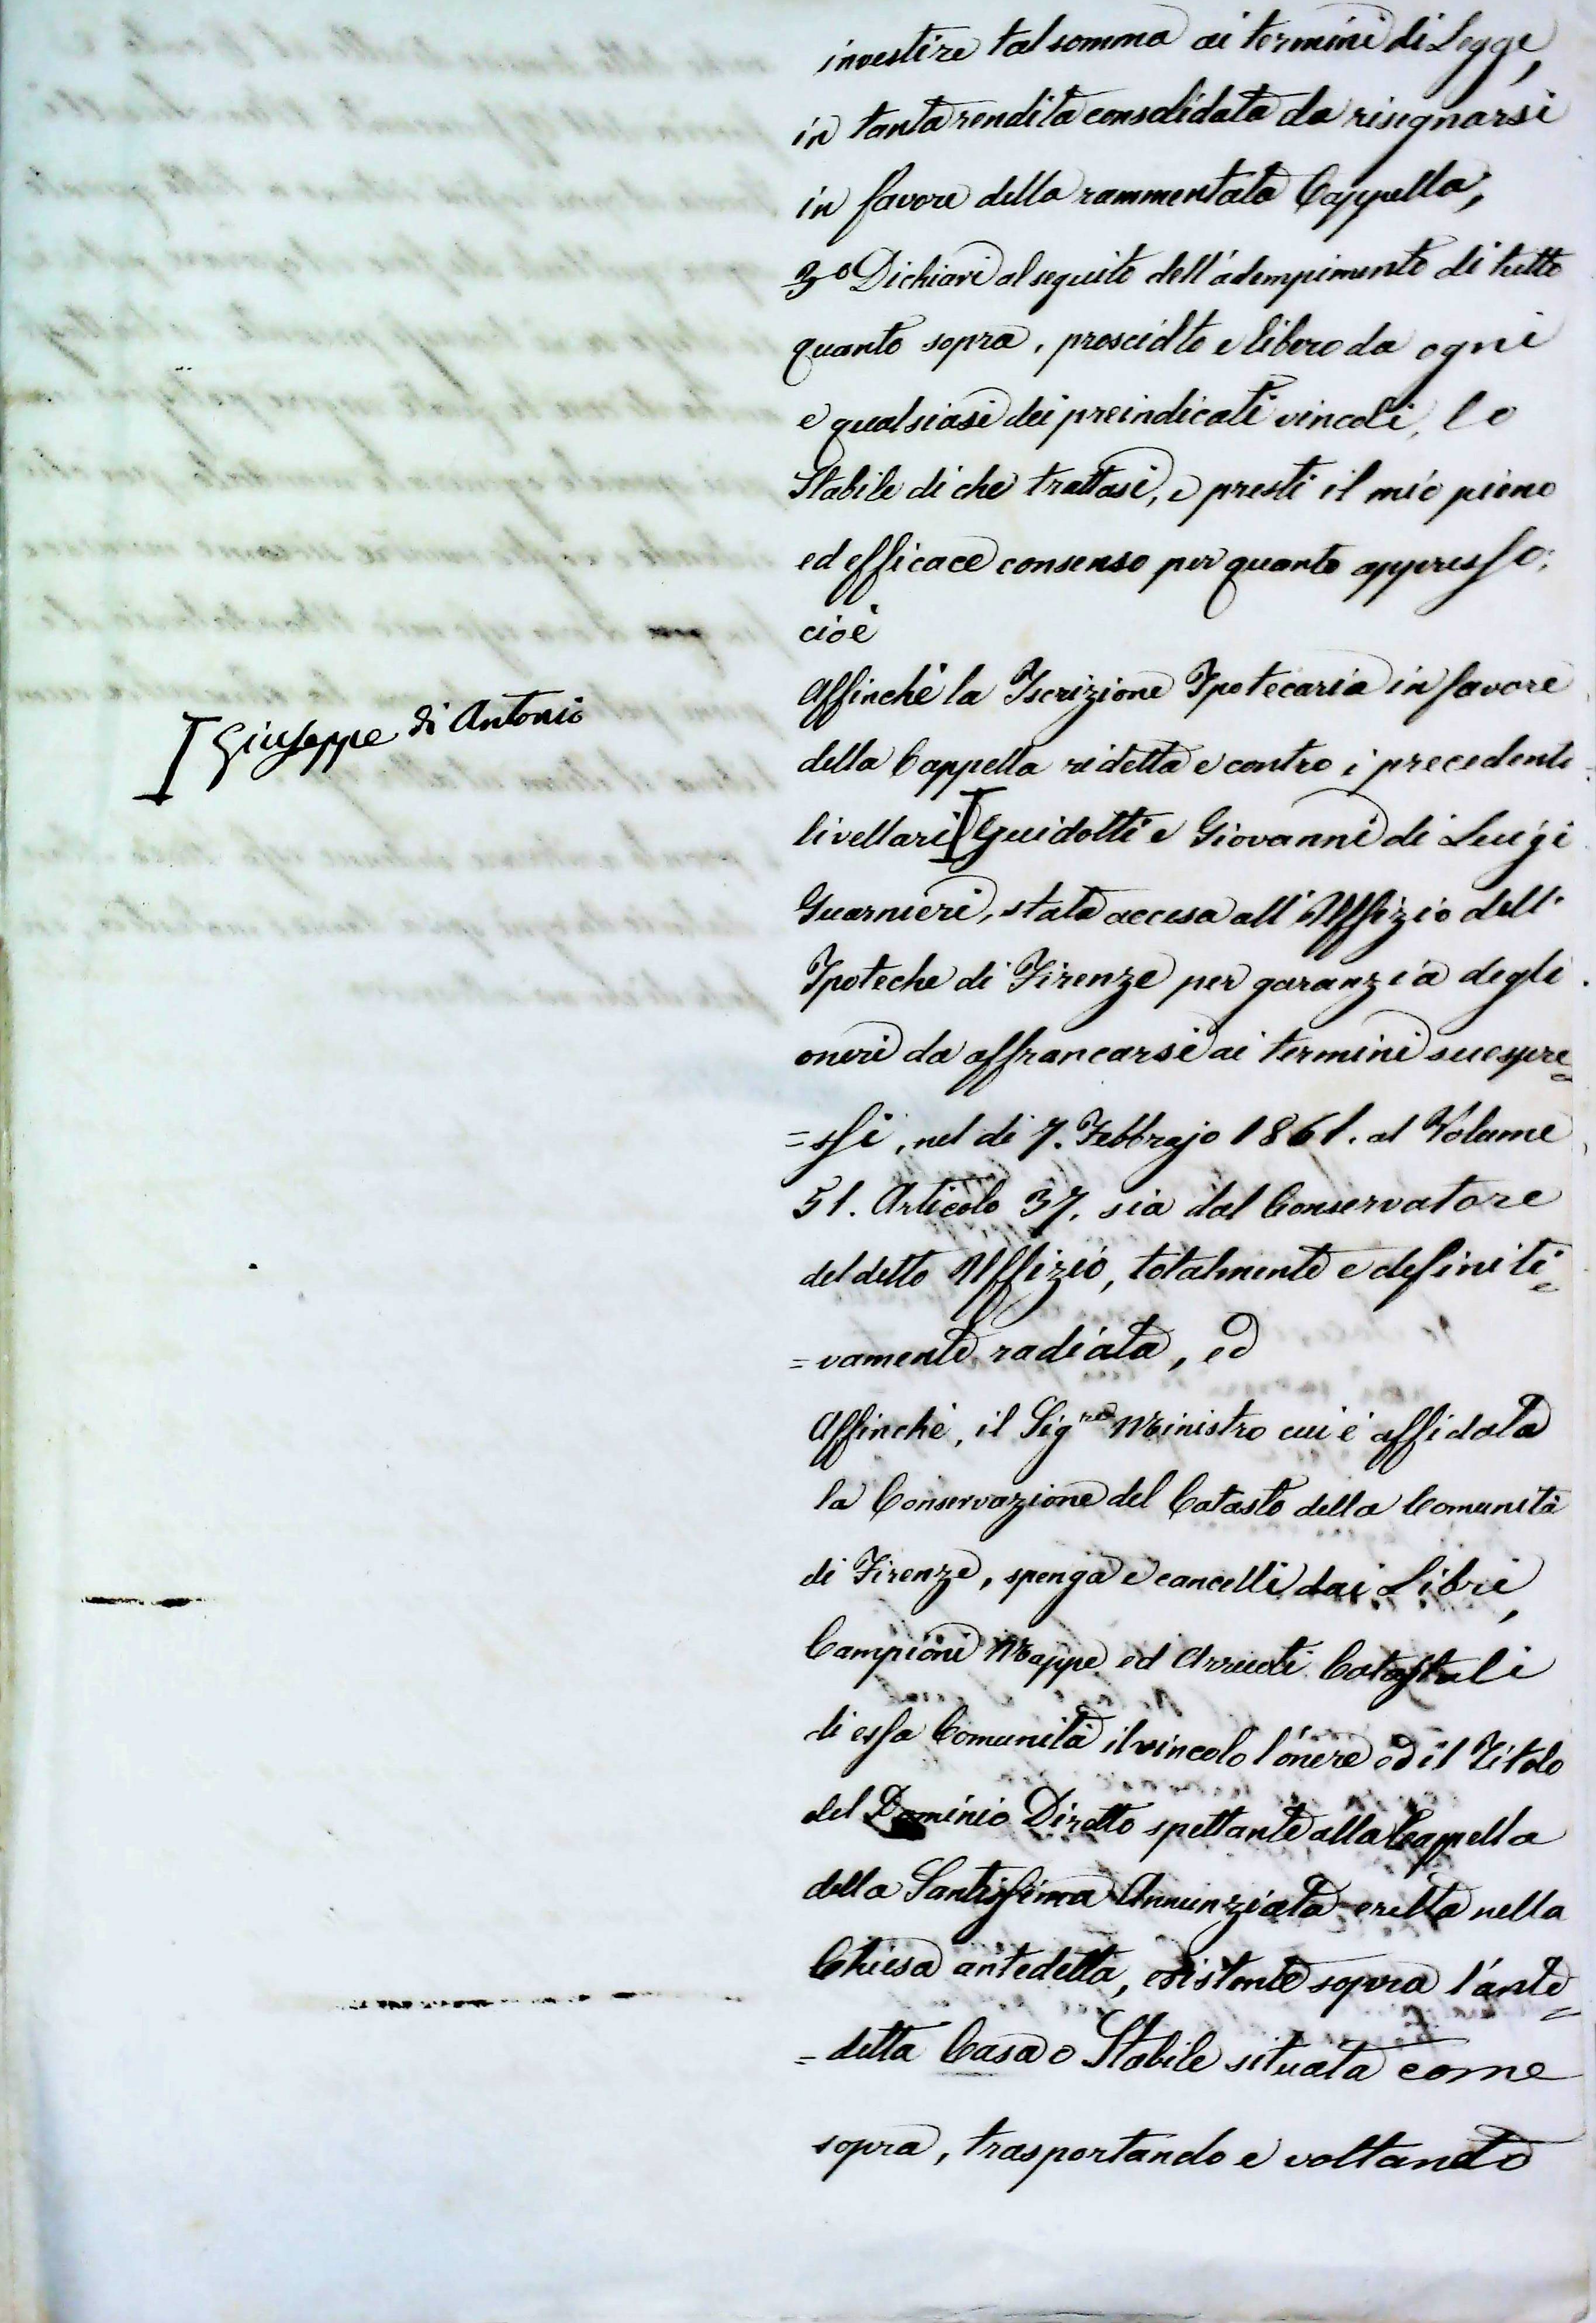 investire tal somma ai termini di Legge,
in tanta rendita consolidata da risegnarsi
in favore della rammentata Cappella,
3º Dichiari al seguito dell'adempimento di tutto
quanto sopra, prosciolto e libero da ogni
e qualsiasi dei preindicati vincoli, lo
Stabile di che trattasi, e presti il mio pieno
ed efficace consenso per quanto appresso;
cioè
Affinchè la Iscrizione Ipotecaria in favore
della Cappella ridetta e contro i precedenti
[Giuseppe di Antonio
livellari [Guidotti e Giovanni di Luigi
Guarnieri, stata accesa all'Uffizio dell'
Ipoteche di Firenze per garanzia degli
oneri da affrancarsi ai termini suespre=
=ssi, nel di 7. Febbrajo 1861. al Volume
51. Articolo 37. sia dal Conservatore
del detto Uffizio, totalmente e definiti=
=vamente radiata, ed
Affinchè, il Sig.re Ministro cui è affidata
la Conservazione del Catasto della Comunità
di Firenze, spenga e cancelli dai Libri,
Campioni Mappe ed Arruoti Catastali
di essa Comunità il vincolo l'onere ed il Titolo
del Dominio Diretto spettante alla Cappella
della Santissima Annunziata eretta nella
Chiesa antedetta, esistente sopra l'ante=
=detta Casa o Stabile situata come
sopra, trasportando e voltando